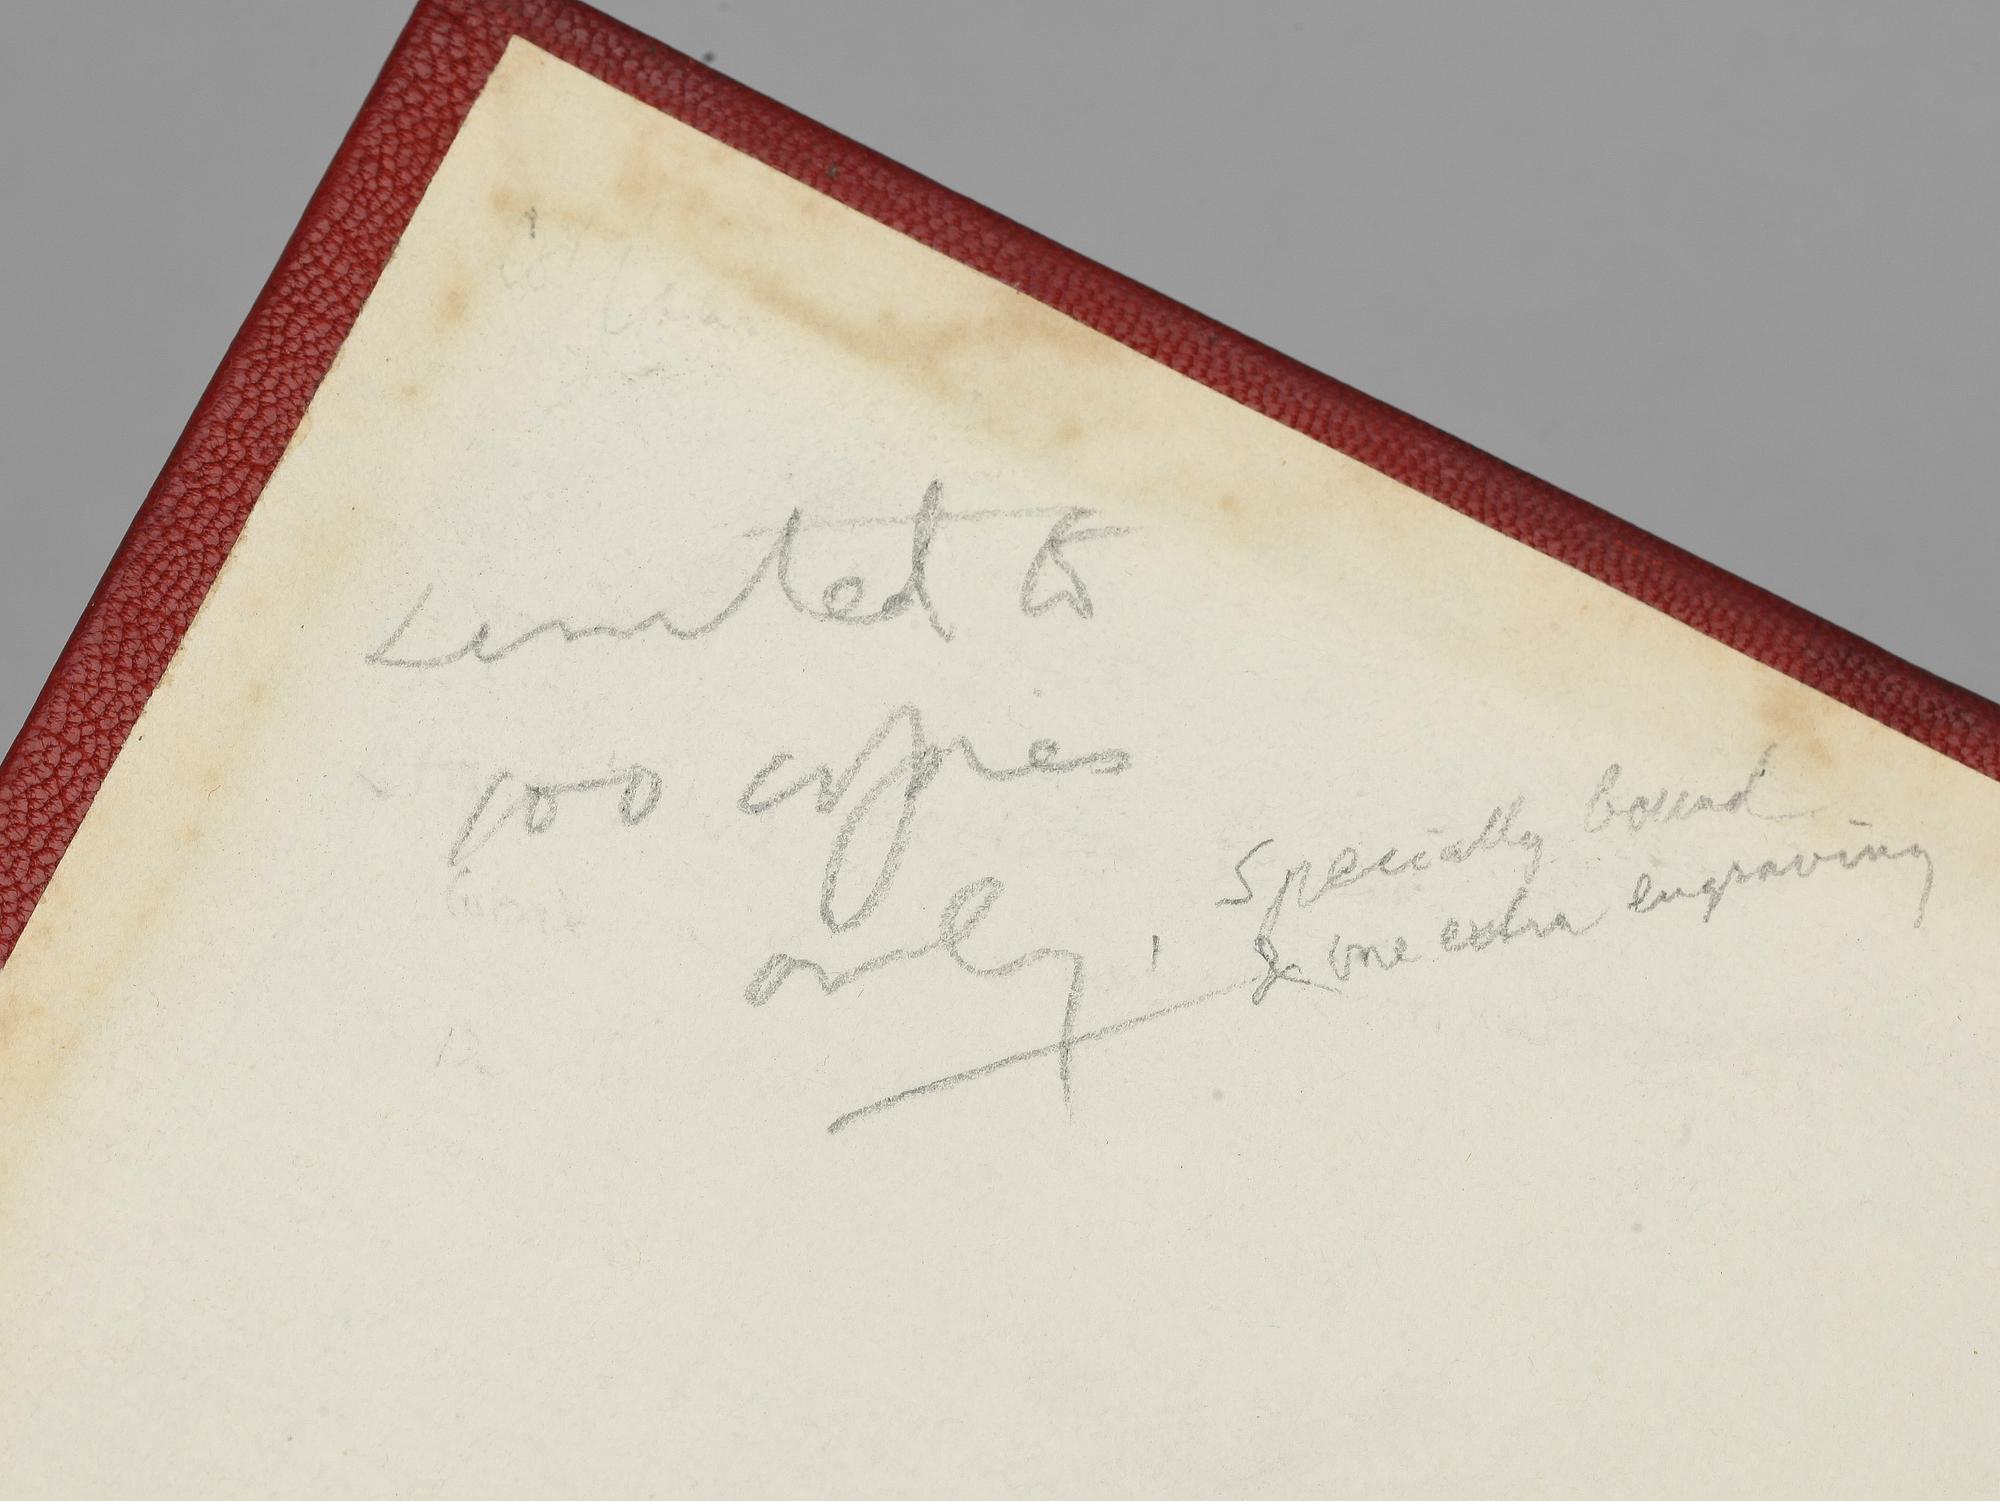 Limited to
100 copies
only,
Specially bound
& one extra engraving